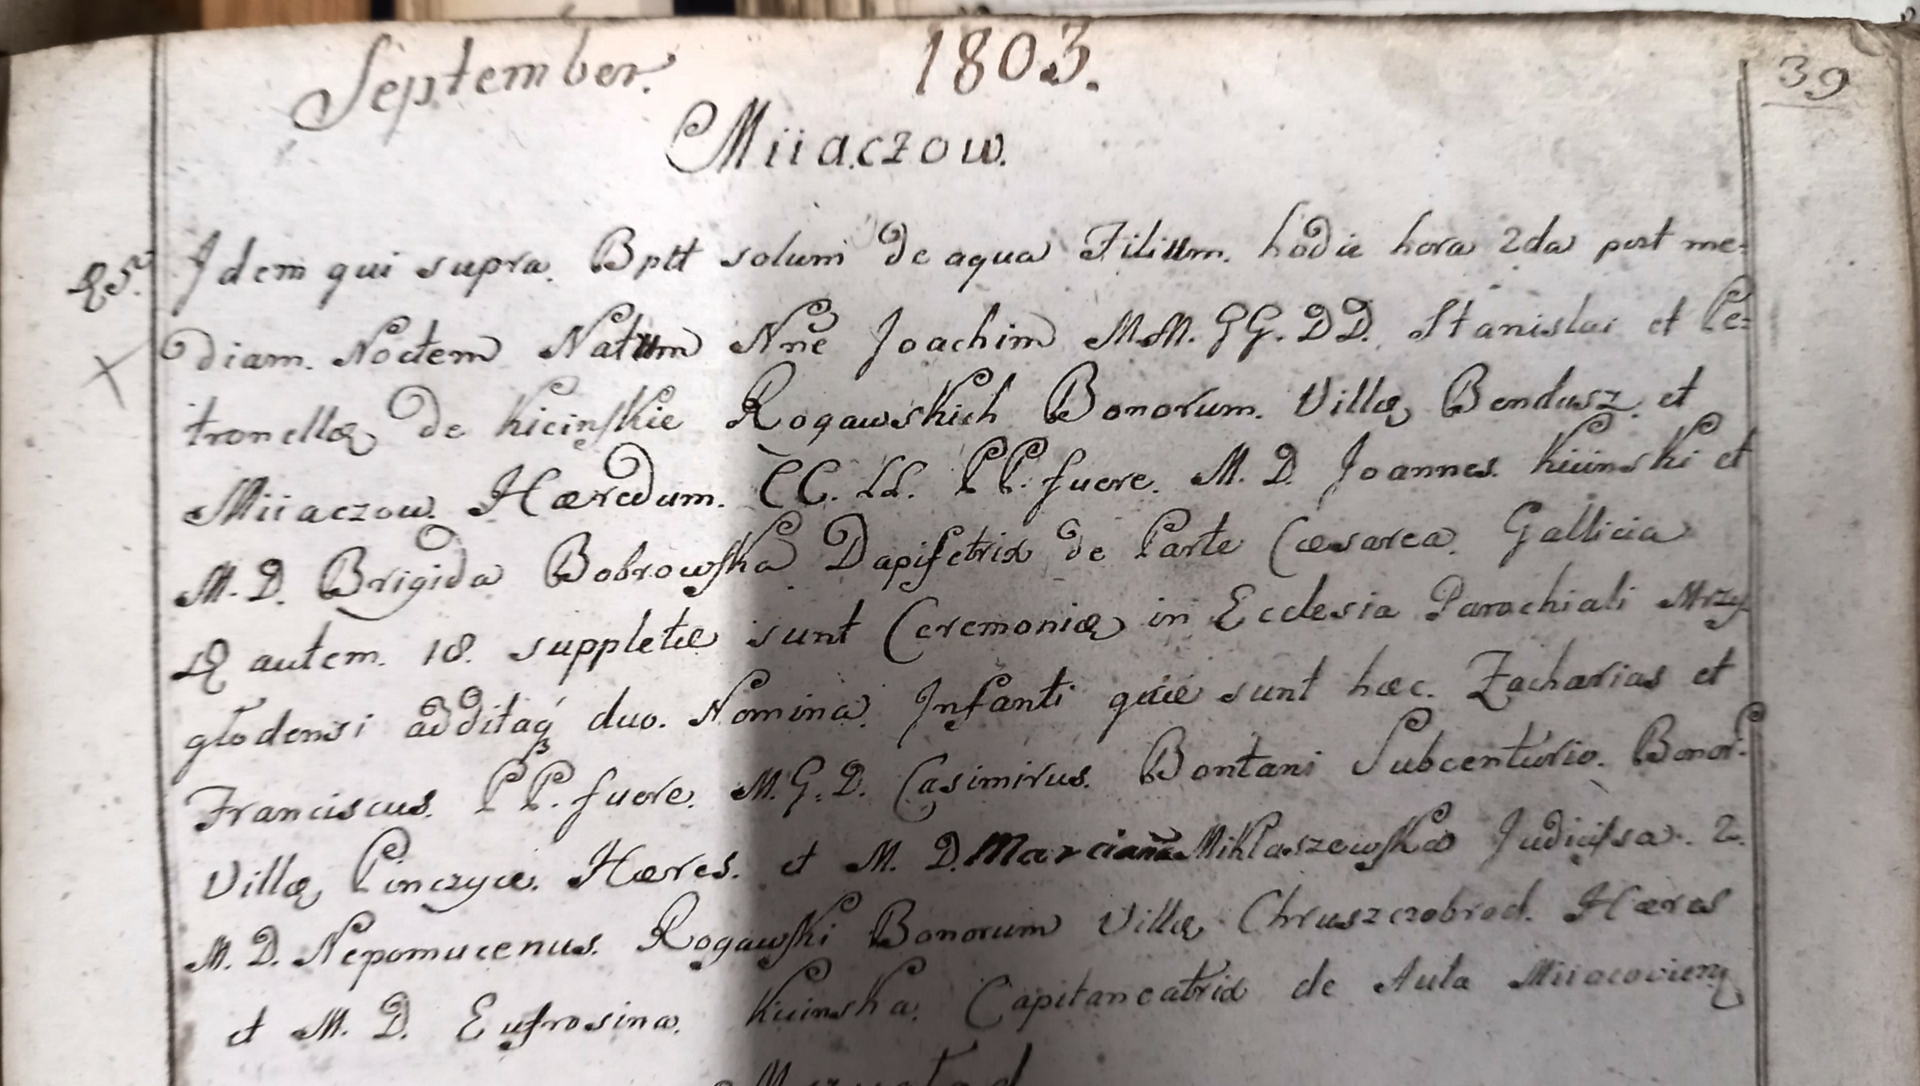 September. 1803. 39
Miiaczow.
25ª Idem qui supra. Bptt solum de aqua Filium. hodie hora 2da post me-
diam. Noctem Natum Nne Joachim M.M. G G. D D. Stanislai et Pe=
tronellæ de Kicinskie Rogawskich Bonorum. Villæ Bendusz. et
Miiaczow. Hæredum. C C. L L. P P. fuere. M. D. Joannes. Kicinski et
M. D. Brigida Bobrowska Dapifetrix de Parte Cæsarea. Gallicia
autem. 18. suppletæ sunt Ceremoniæ in Ecclesia Parochiali Mrzy
głodensi additaq duo. Nomina. Infanti quæ sunt hæc. Zacharias et
Franciscus. P P. fuere. M. G. D. Casimirus. Bontani Subcenturio. Bonor.
Villæ Pinczyce. Hæres. et M. D. Marcianna Miklaszewska Judicissa. 2.
M. D. Nepomucenus. Rogawski Bonorum Villæ Chruszczobrod. Hæres
et M. D. Eufrosina. Kicinska. Capitaneatrix de Aula